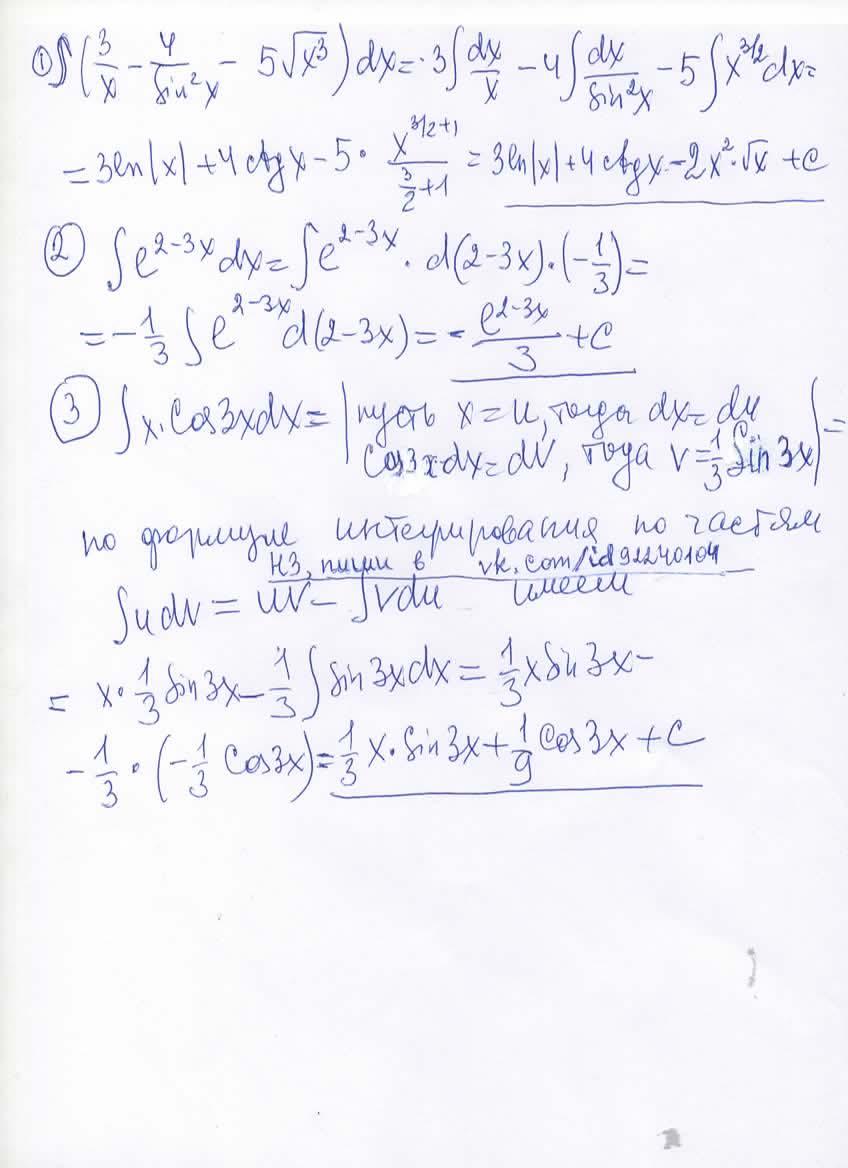 ① ∫(3/x − 4/sin²x − 5√x³)dx = 3∫dx/x − 4∫dx/sin²x − 5∫x^{3/2}dx =
= 3ln|x| + 4ctgx − 5 · x^{3/2+1}/(3/2+1) = 3ln|x| + 4ctgx − 2x²·√x + c
② ∫e^{2−3x}dx = ∫e^{2−3x} · d(2−3x)·(−1/3) =
= −1/3 ∫e^{2−3x}d(2−3x) = −e^{2−3x}/3 + c
③ ∫x·cos3xdx = | пусть x = u, тогда dx = du
cos3x·dx = dv, тогда v = 1/3 sin3x | =
по формуле интегрирования по частям
НЗ, пиши в vk.com/id91240104
∫udv = uv − ∫vdu имеем
= x·1/3 sin3x − 1/3 ∫sin3xdx = 1/3 x sin3x −
− 1/3 · (−1/3 cos3x) = 1/3 x·sin3x + 1/9 cos3x + c